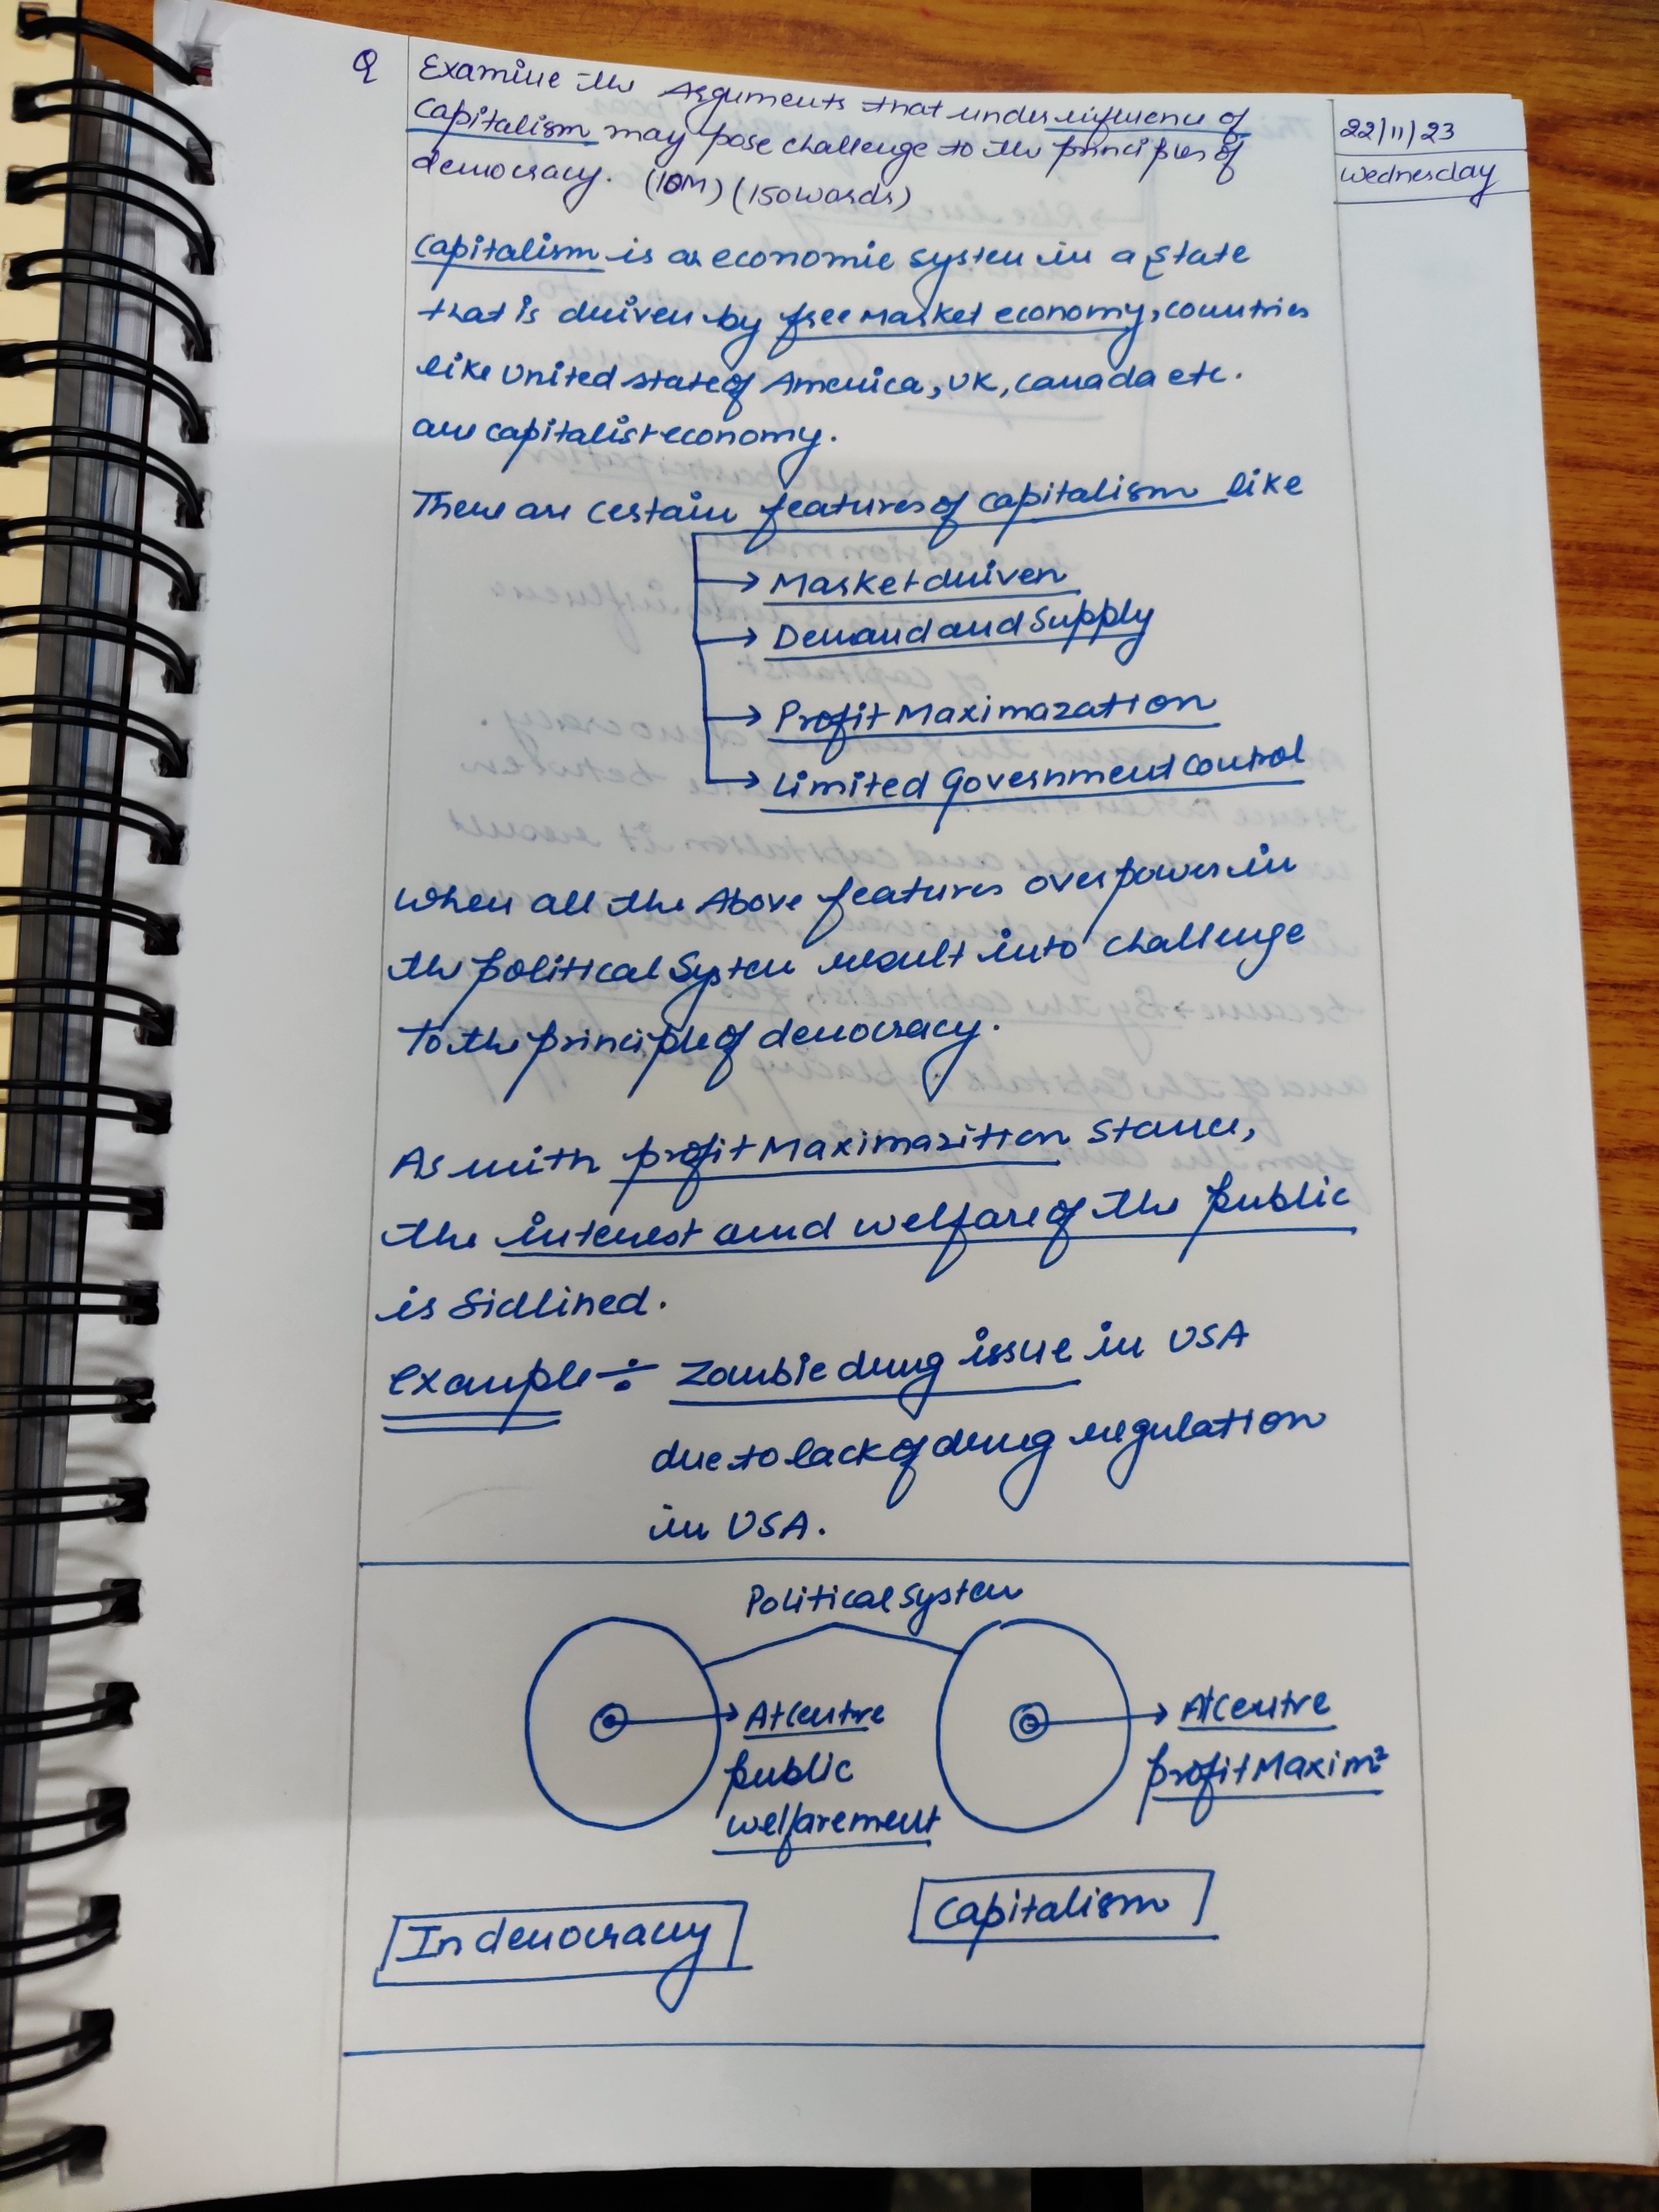 Q Examine the Arguments that under influence of
capitalism may pose challenge to the principles of
democracy. (10M) (150words)
22/11/23
Wednesday
Capitalism is an economic system in a state
that is driven by free Market economy, countries
like United state of America, UK, Canada etc.
are capitalist economy.
There are certain features of capitalism like
→ Market driven
→ Demand and Supply
→ Profit Maximazation
→ Limited Government control
When all the Above features overpower in
the political System result into challenge
To the principle of democracy.
As with profit Maximazition stance,
the interest and welfare of the public
is Sidlined.
Example ÷ Zombie drug issue in USA
due to lack of drug regulation
in USA.
Political System
At centre
public
welfarement
At centre
profit Maxim²
In democracy
Capitalism